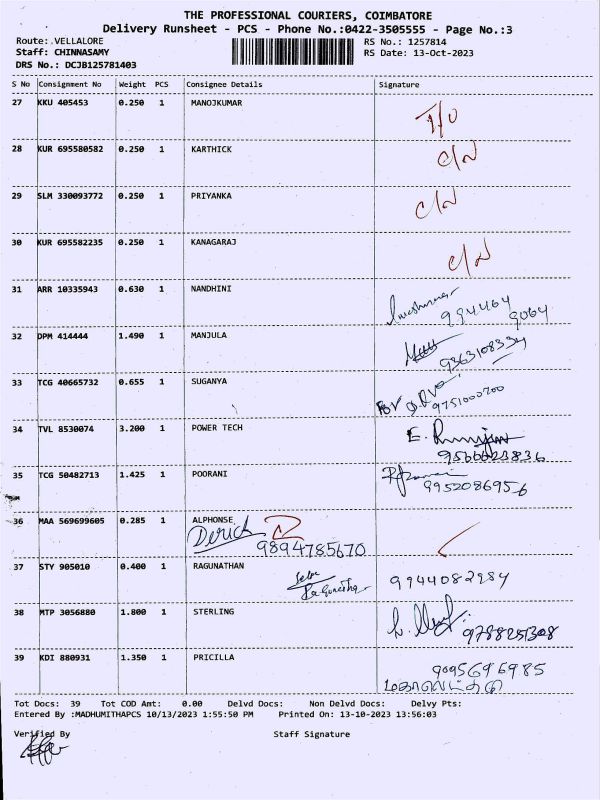 THE PROFESSIONAL COURIERS, COIMBATORE
Delivery Runsheet - PCS - Phone No.:0422-3505555 - Page No.:3
Route: .VELLALORE RS No.: 1257814
Staff: CHINNASAMY RS Date: 13-Oct-2023
DRS No.: DCJB125781403
S No Consignment No Weight PCS Consignee Details Signature
27 KKU 405453 0.250 1 MANOJKUMAR
28 KUR 695580582 0.250 1 KARTHICK C/N
29 SLM 330093772 0.250 1 PRIYANKA C/N
30 KUR 695582235 0.250 1 KANAGARAJ C/N
31 ARR 10335943 0.630 1 NANDHINI
994464
9064
32 DPM 414444 1.490 1 MANJULA
9363108334
33 TCG 40665732 0.655 1 SUGANYA
9751000700
34 TVL 8530074 3.200 1 POWER TECH E.
9566623836
35 TCG 50482713 1.425 1 POORANI
9952086956
36 MAA 569699605 0.285 1 ALPHONSE
Derick
9894785670
37 STY 905010 0.400 1 RAGUNATHAN
9944082984
38 MTP 3056880 1.800 1 STERLING
9788251308
39 KDI 880931 1.350 1 PRICILLA
9095696985
Tot Docs: 39 Tot COD Amt: 0.00 Delvd Docs: Non Delvd Docs: Delvy Pts:
Entered By :MADHUMITHAPCS 10/13/2023 1:55:50 PM Printed On: 13-10-2023 13:56:03
Verified By Staff Signature